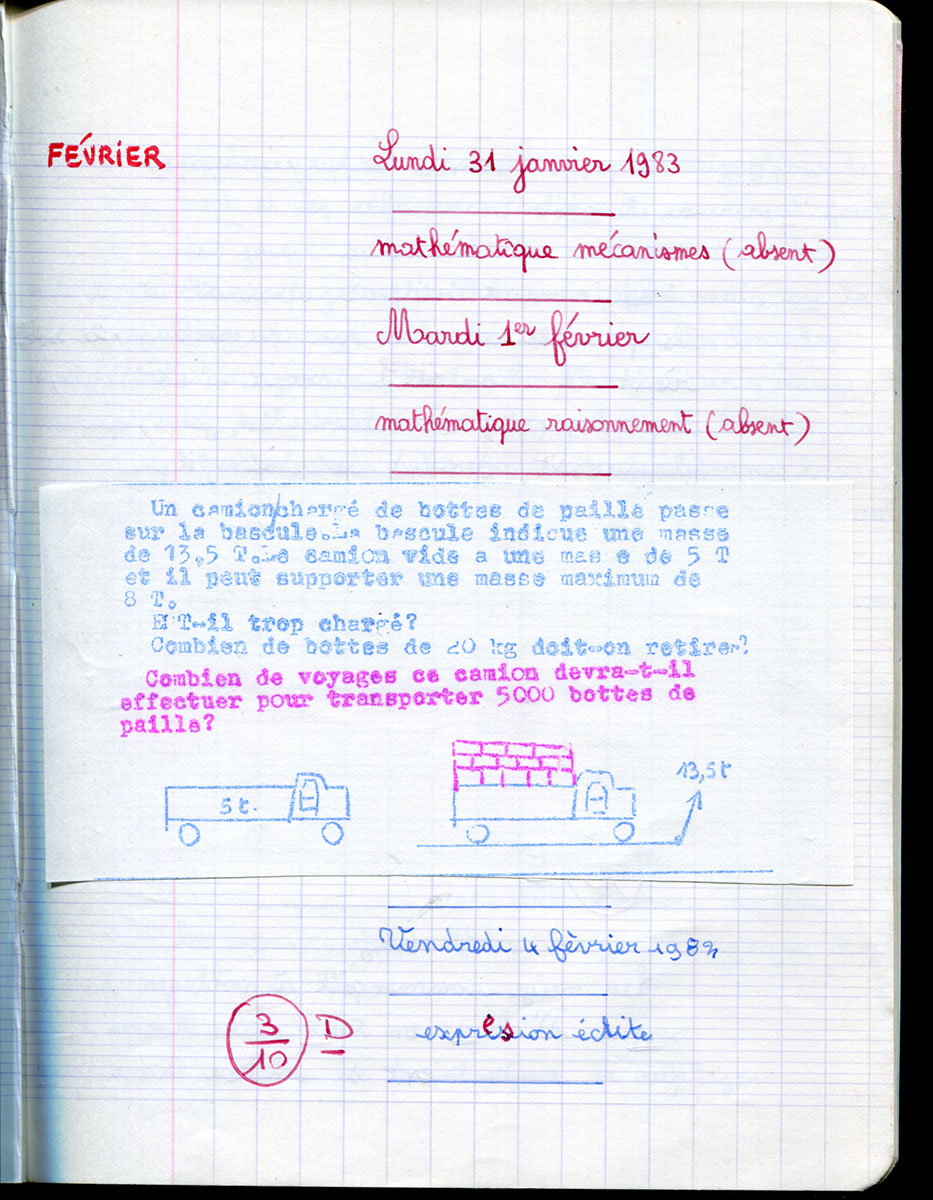 FÉVRIER
Lundi 31 janvier 1983
mathématique mécanismes (absent)
Mardi 1er février
mathématique raisonnement (absent)
Un camion/chargé de bottes de paille passe
sur la bascule.La bascule indique une masse
de 13,5 T.Le camion vide a une mas e de 5 T
et il peut supporter une masse maximum de
8 T.
EST-il trop chargé?
Combien de bottes de 20 kg doit-on retirer?
Combien de voyages ce camion devra-t-il
effectuer pour transporter 5000 bottes de
paille?
5 t.
13,5t
Vendredi 4 fèvrier 1983
3/10 D
expression